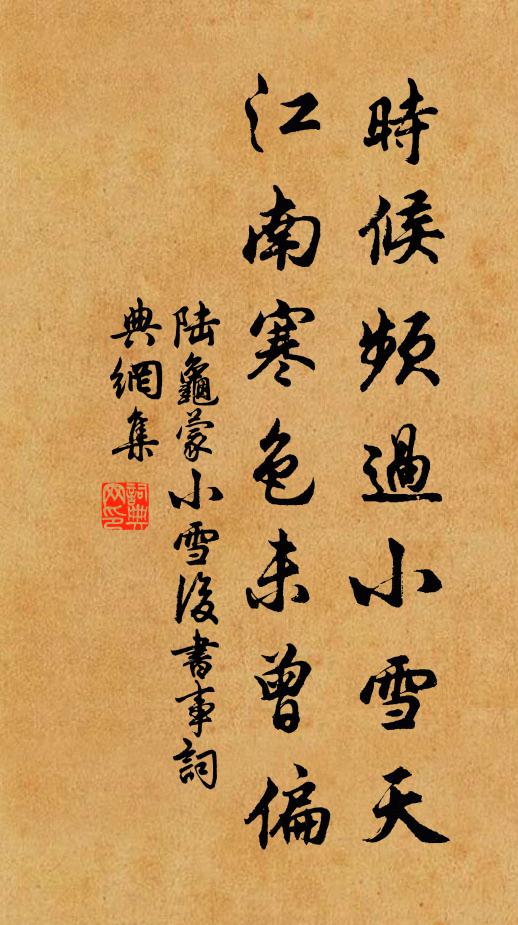 時候頻過小雪天
江南寒色未曾偏
陆龜蒙小雪後書事詞
典網集
詞典
网印